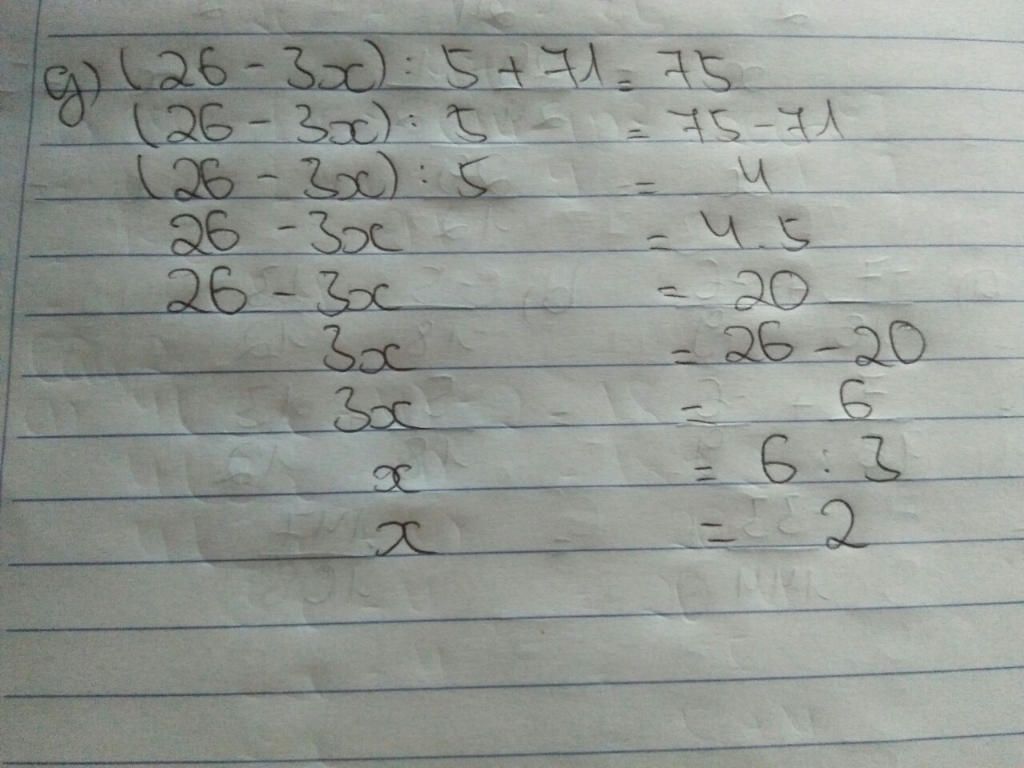 g) (26 - 3x) : 5 + 71 = 75
(26 - 3x) : 5 = 75 - 71
(26 - 3x) : 5 = 4
26 - 3x = 4.5
26 - 3x = 20
3x = 26 - 20
3x = 6
x = 6 : 3
x = 2